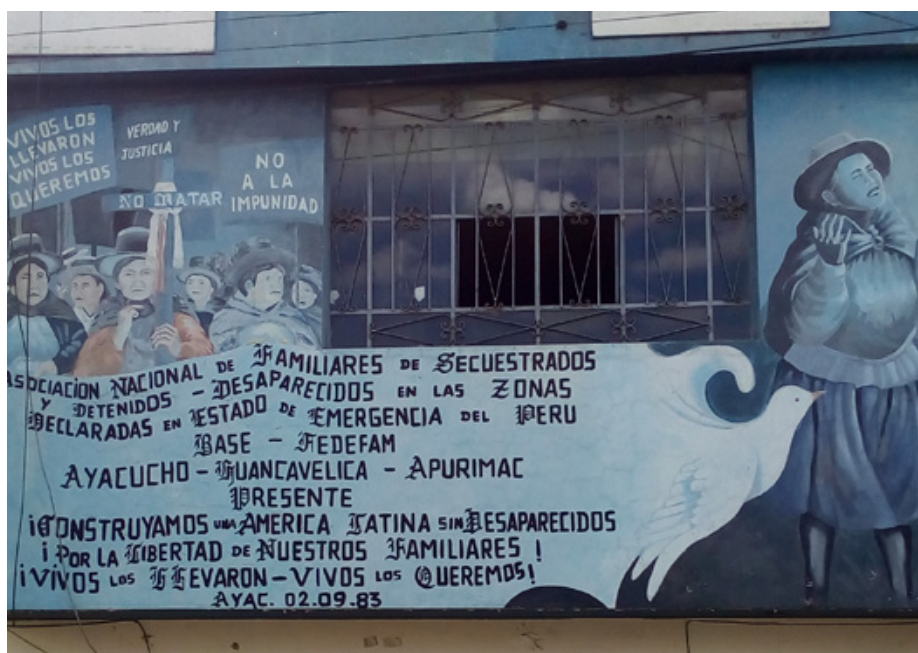 VIVOS LOS
LLEVARON
VIVOS LOS
QUEREMOS
VERDAD Y
JUSTICIA
NO MATAR
NO
A LA
IMPUNIDAD
ASOCIACION NACIONAL DE FAMILIARES DE SECUESTRADOS
Y DETENIDOS - DESAPARECIDOS EN LAS ZONAS
DECLARADAS EN ESTADO DE EMERGENCIA DEL PERU
BASE - FEDEFAM
AYACUCHO - HUANCAVELICA - APURIMAC
PRESENTE
¡CONSTRUYAMOS UNA AMERICA LATINA SIN DESAPARECIDOS
¡POR LA LIBERTAD DE NUESTROS FAMILIARES!
¡VIVOS LOS LLEVARON - VIVOS LOS QUEREMOS!
AYAC. 02.09.83